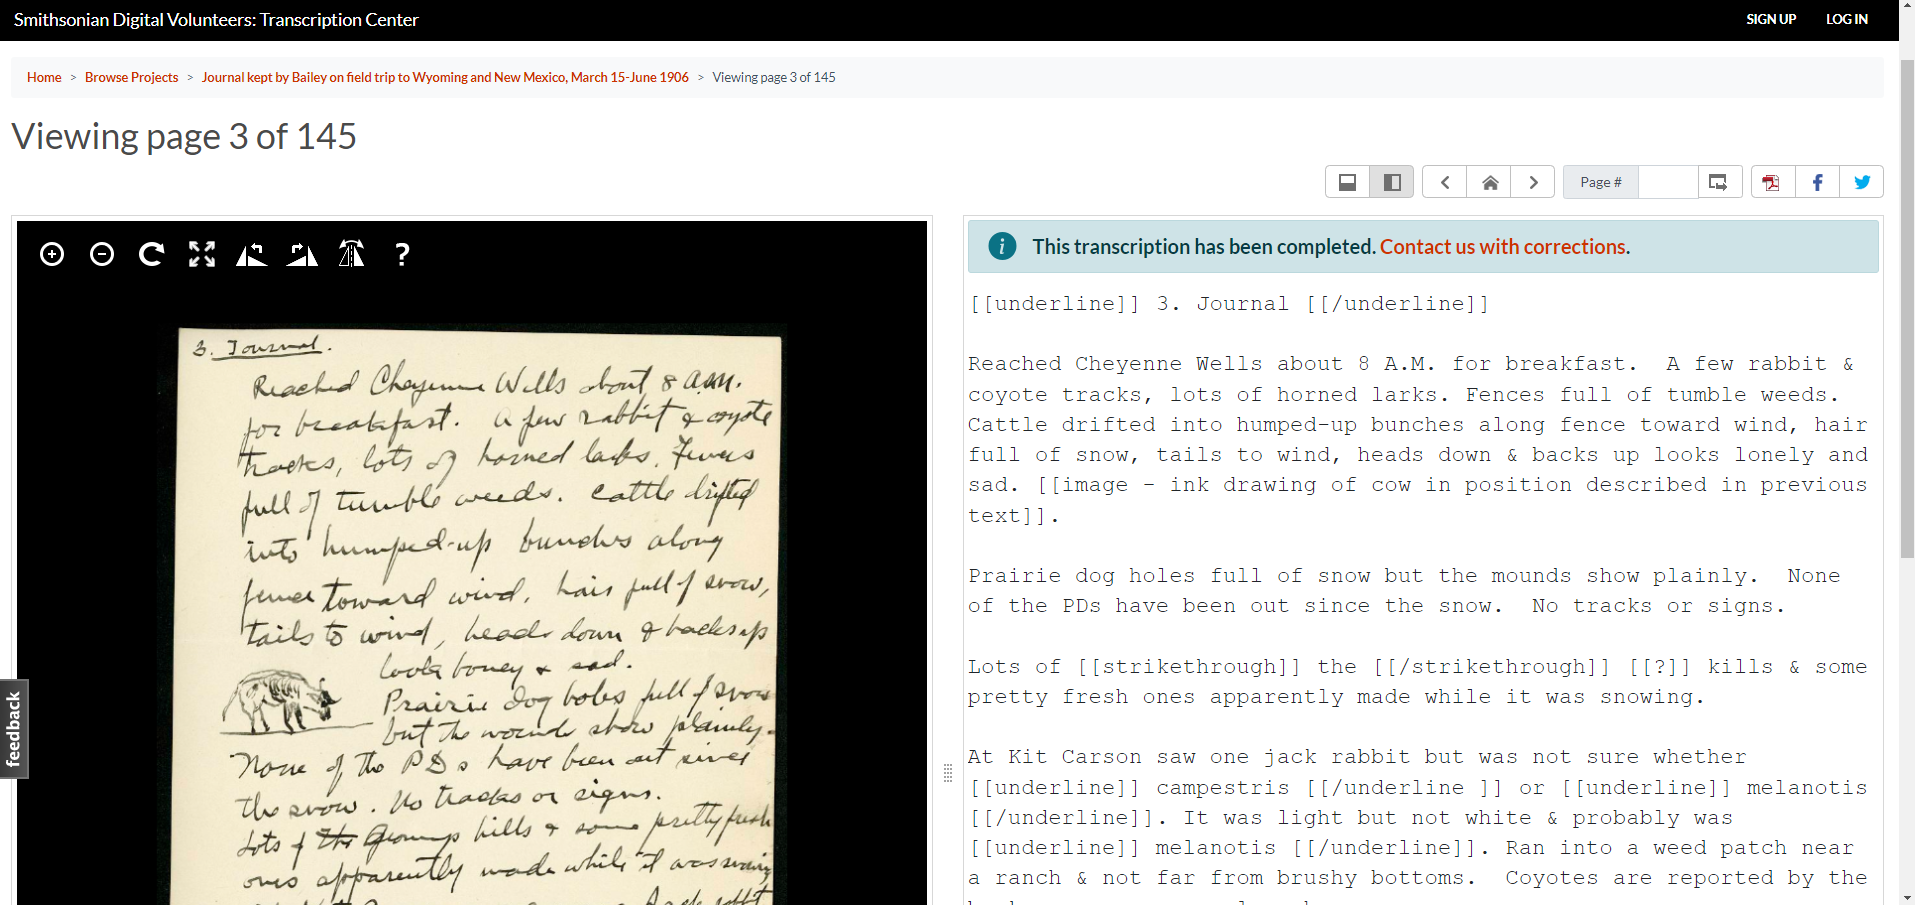 Smithsonian Digital Volunteers: Transcription Center
SIGN UP
LOG IN
Home > Browse Projects > Journal kept by Bailey on field trip to Wyoming and New Mexico, March 15-June 1906 > Viewing page 3 of 145
Viewing page 3 of 145
Page #
3. Journal.
Reached Cheyenne Wells about 8 a.m.
for breakfast. A few rabbit & coyote
tracks, lots of horned larks. Fences
full of tumble weeds. Cattle drifted
into humped-up bunches along
fence toward wind, hair full of snow,
tails to wind, heads down & backs up
looks boney & sad.
Prairie dog holes full of snow
but the mounds show plainly.
None of the PDs have been out since
the snow. No tracks or signs.
Lots of the hills & some pretty fresh
ones apparently made while it was snowing
Jack rabbit
feedback
This transcription has been completed. Contact us with corrections.
[[underline]] 3. Journal [[/underline]]
Reached Cheyenne Wells about 8 A.M. for breakfast.  A few rabbit &
coyote tracks, lots of horned larks. Fences full of tumble weeds.
Cattle drifted into humped-up bunches along fence toward wind, hair
full of snow, tails to wind, heads down & backs up looks lonely and
sad. [[image - ink drawing of cow in position described in previous
text]].
Prairie dog holes full of snow but the mounds show plainly.  None
of the PDs have been out since the snow.  No tracks or signs.
Lots of [[strikethrough]] the [[/strikethrough]] [[?]] kills & some
pretty fresh ones apparently made while it was snowing.
At Kit Carson saw one jack rabbit but was not sure whether
[[underline]] campestris [[/underline ]] or [[underline]] melanotis
[[/underline]]. It was light but not white & probably was
[[underline]] melanotis [[/underline]]. Ran into a weed patch near
a ranch & not far from brushy bottoms.  Coyotes are reported by the